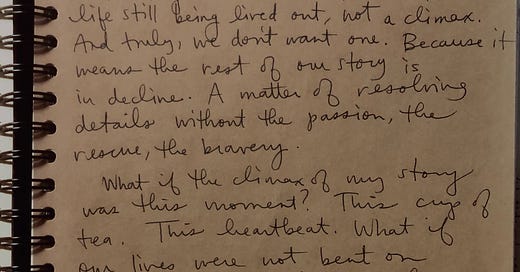 life still being lived out, not a climax.
And truly, we don't want one. Because it
means the rest of our story is
in decline. A matter of resolving
details without the passion, the
rescue, the bravery.
What if the climax of my story
was this moment? This cup of
tea. This heartbeat. What if
our lives were not bent on